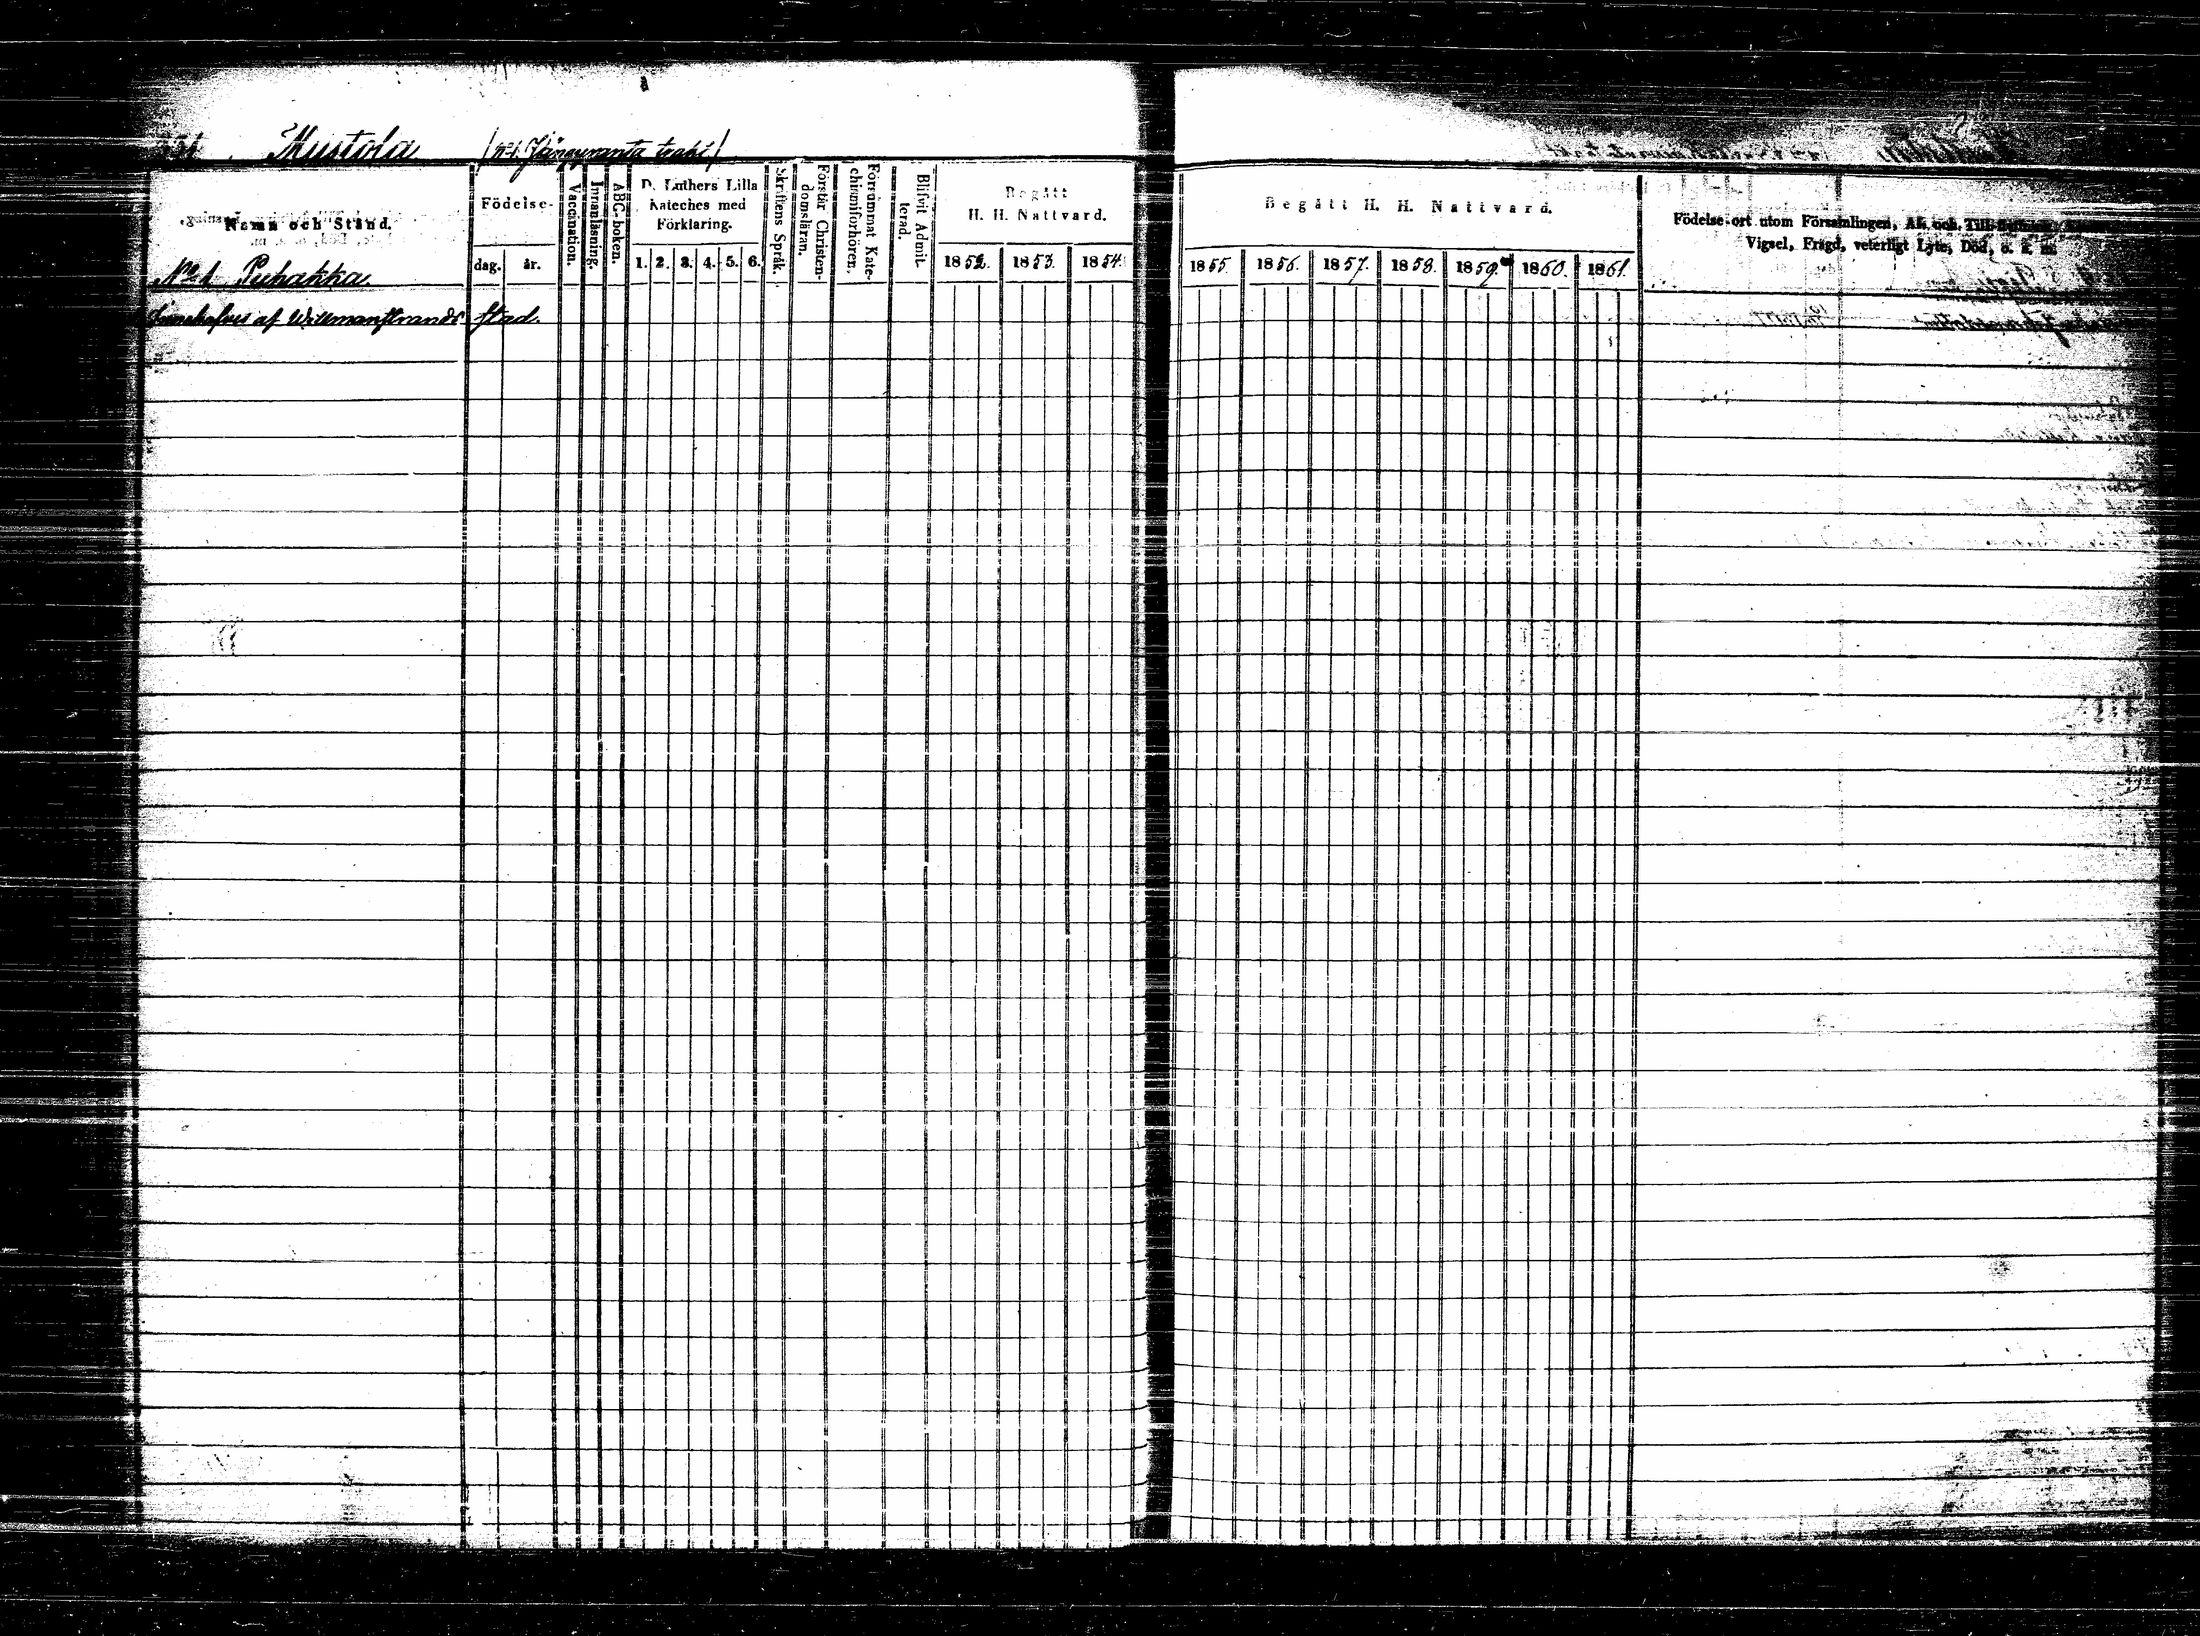 Mustola (№ 1. Jängynranta trakt)
Namn och Stånd.
Födelse-
dag. år.
Vaccination.
Innanläsning.
ABC-boken.
D. Luthers Lilla
Kateches med
Förklaring.
1. 2. 3. 4. 5. 6.
Skriftens Språk.
Förstår Christen-
domsläran.
Försummat Kate-
chismiförhören.
Blifvit Admit-
terad.
Begått
H. H. Nattvard.
1852. 1853. 1854.
Begått H. H. Nattvard.
1855. 1856. 1857. 1858. 1859. 1860. 1861.
Födelse-ort utom Församlingen, Af- och Till-
Vigsel, Frägd, veterligt Lyte, Död, o. s. m.
№ 1 Puhakka.
Innehafves af Willmanstrands stad.